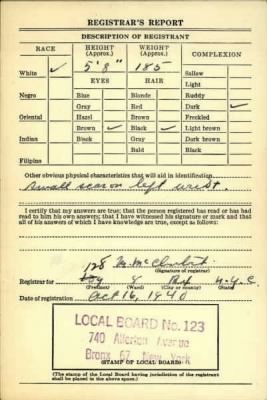 REGISTRAR'S REPORT
DESCRIPTION OF REGISTRANT
RACE HEIGHT (Approx.) WEIGHT (Approx.) COMPLEXION
White ✓ 5'8" 185 Sallow
EYES HAIR Light
Negro Blue Blonde Ruddy
Gray Red Dark ✓
Oriental Hazel Brown Freckled
Brown ✓ Black ✓ Light brown
Indian Black Gray Dark brown
Bald Black
Filipino
Other obvious physical characteristics that will aid in identification
small scar on left wrist.
I certify that my answers are true; that the person registered has read or has had
read to him his own answers; that I have witnessed his signature or mark and that
all of his answers of which I have knowledge are true, except as follows:
128
(Signature of registrar)
Registrar for Bx N.Y.C.
(Precinct) (Ward) (City or county) (State)
Date of registration Oct 16, 1940
LOCAL BOARD No. 123
740 Allerton Avenue
Bronx 67, New York
(STAMP OF LOCAL BOARD)
(The stamp of the Local Board having jurisdiction of the registrant
shall be placed in the above space.)